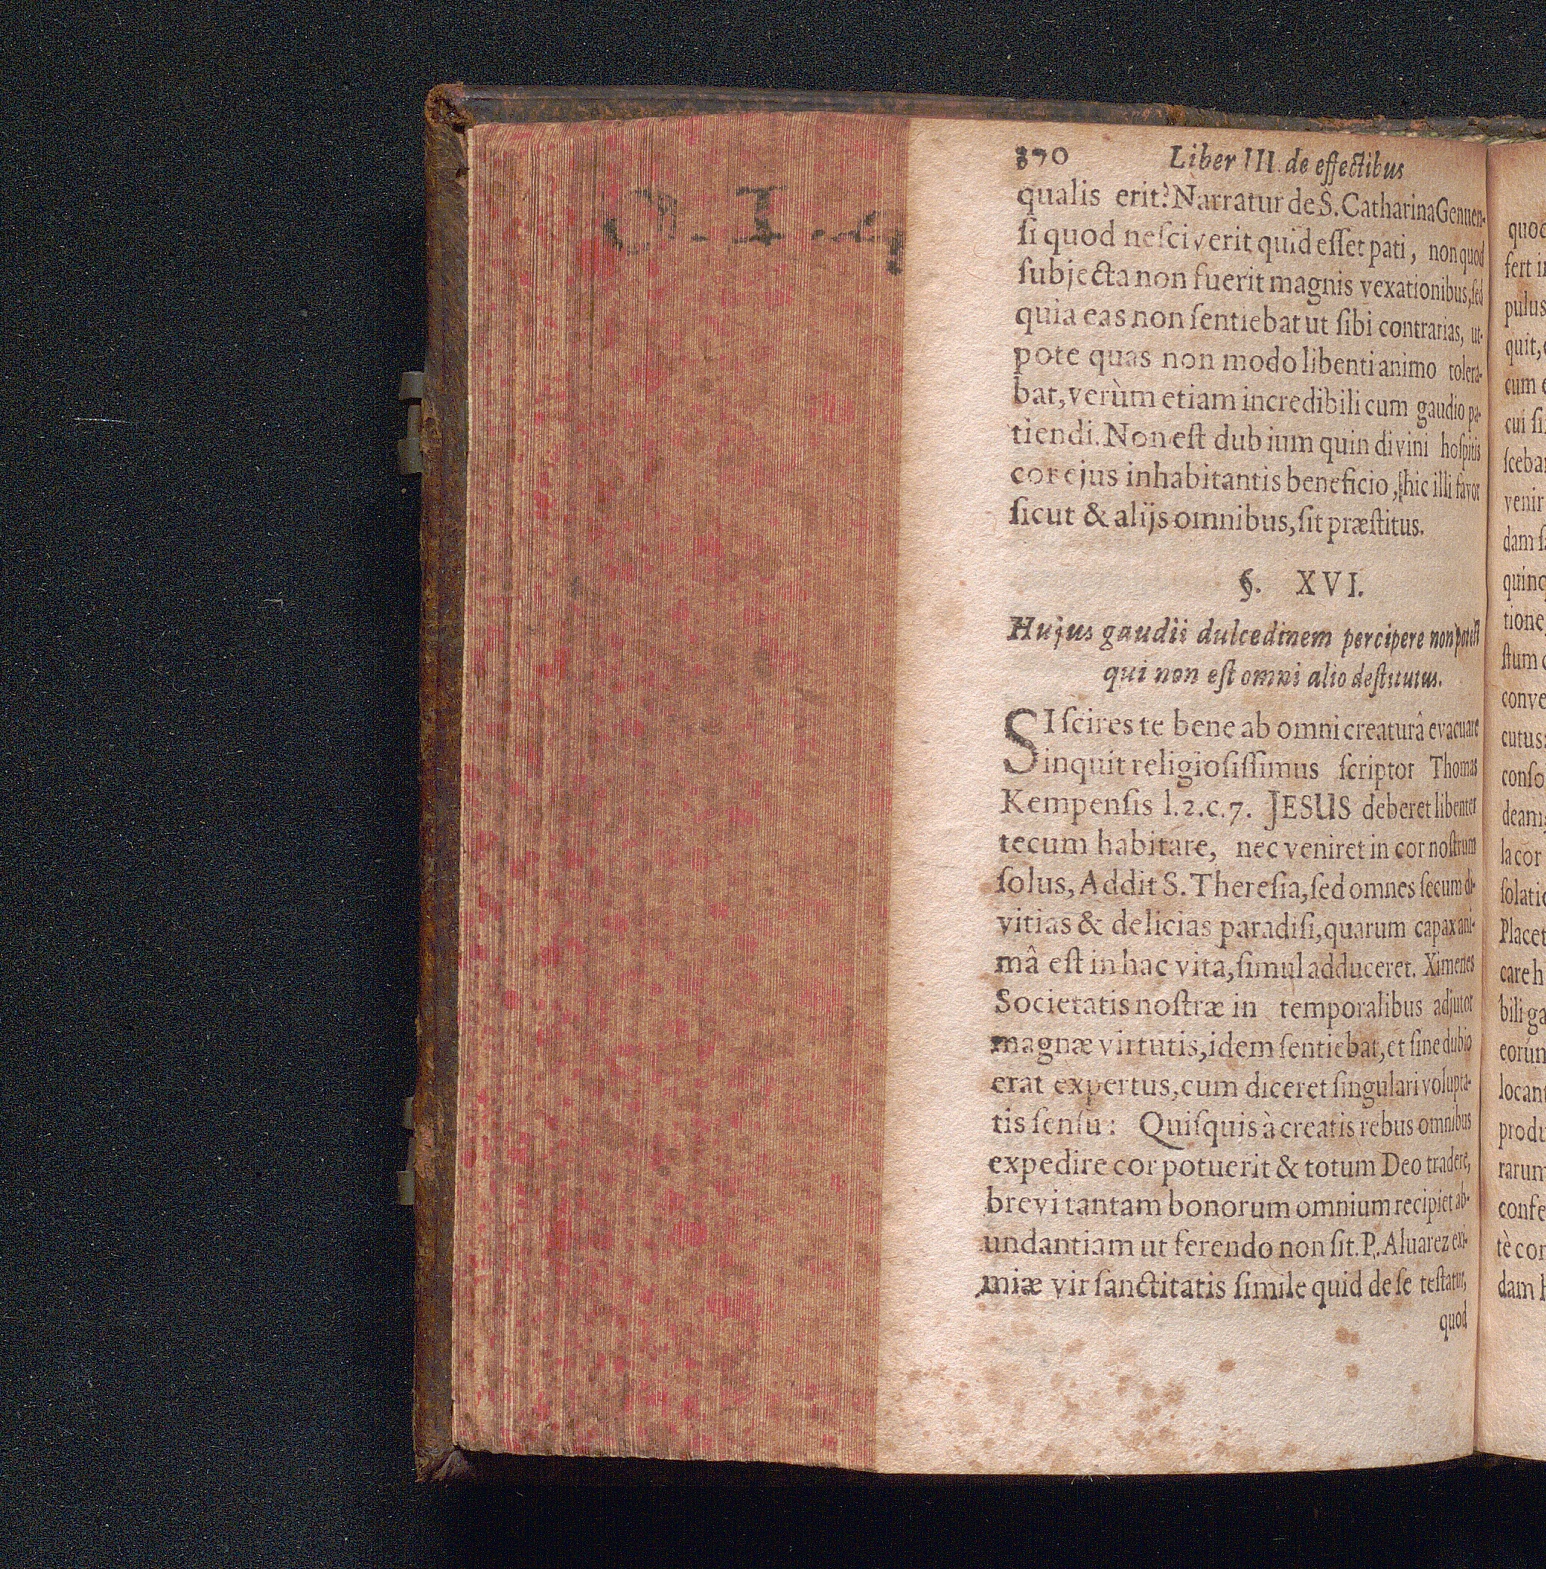 370 Liber III. de effectibus
qualis erit? Narratur de S. Catharina Genuen-
si quod nesciverit quid esset pati, non quod
subjecta non fuerit magnis vexationibus, sed
quia eas non sentiebat ut sibi contrarias, ut-
pote quas non modo libenti animo tolera-
bat, verùm etiam incredibili cum gaudio pa-
tiendi. Non est dubium quin divini hospitis
cor ejus inhabitantis beneficio, hic illi favor
sicut & alijs omnibus, sit præstitus.
§. XVI.
Hujus gaudii dulcedinem percipere non potest
qui non est omni alio destitutus.
SI scires te bene ab omni creaturâ evacuare
inquit religiosissimus scriptor Thomas
Kempensis l. 2. c. 7. JESUS deberet libenter
tecum habitare, nec veniret in cor nostrum
solus, Addit S. Theresia, sed omnes secum di-
vitias & delicias paradisi, quarum capax ani-
mâ est in hac vita, simul adduceret. Ximenes
Societatis nostræ in temporalibus adjutor
magnæ virtutis, idem sentiebat, et sine dubio
erat expertus, cum diceret singulari volupta-
tis sensu: Quisquis à creatis rebus omnibus
expedire cor potuerit & totum Deo tradere,
brevi tantam bonorum omnium recipiet ab-
undantiam ut ferendo non sit. P. Aluarez exi-
miæ vir sanctitatis simile quid de se testatur,
quod